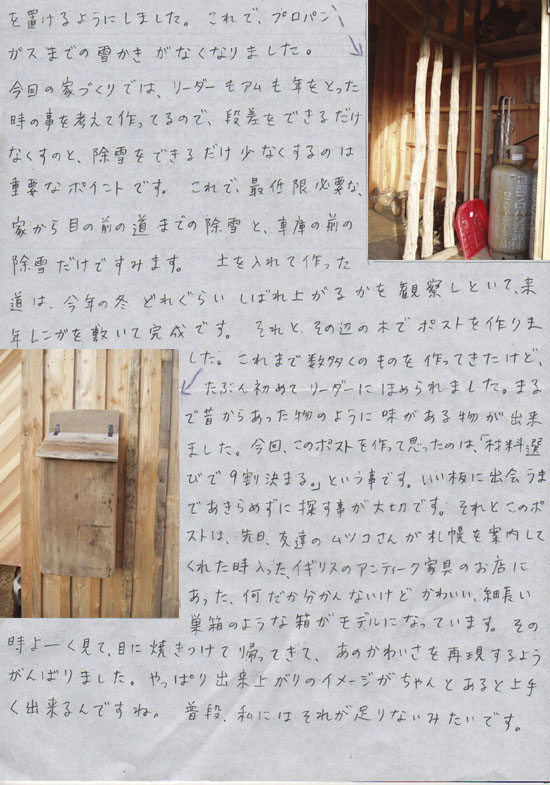 を置けるようにしました。これで、プロパン
ガスまでの雪かきがなくなりました。
今回の家づくりでは、リーダーもアムも年をとった
時の事を考えて作ってるので、段差をできるだけ
なくすのと、除雪をできるだけ少なくするのは
重要なポイントです。これで、最低限必要な、
家から目の前の道までの除雪と、車庫の前の
除雪だけですみます。 土を入れて作った
道は、今年の冬どれぐらいしばれ上がるかを観察しといて、来
年レンガを敷いて完成です。それと、その辺の木でポストを作りま
した。これまで数多くのものを作ってきたけど、
たぶん初めてリーダーにほめられました。まる
で昔からあった物のように味がある物が出来
ました。今回、このポストを作って思ったのは、「材料選
びで9割決まる。」という事です。いい板に出会うま
であきらめずに探す事が大切です。それとこのポ
ストは、先日、友達のムツコさんが札幌を案内して
くれた時入った、イギリスのアンティーク家具のお店に
あった、何だか分かんないけどかわいい、細長い
巣箱のような箱がモデルになっています。その
時よーく見て、目に焼きつけて帰ってきて、あのかわいさを再現するよう
がんばりました。やっぱり出来上がりのイメージがちゃんとあると上手
く出来るんですね。 普段、私にはそれが足りないみたいです。